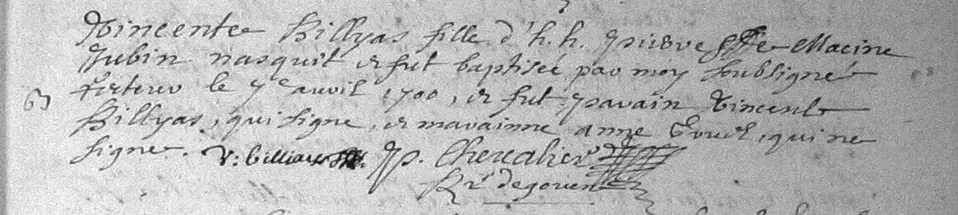 Vincente Billyas fille d'h. h. Pierre & de Macine
Jubin nasquit & fut baptisée par moy soubsigné
recteur le 7e avril 1700, & fut parain Vincent
Billyas, qui signe, & maraine anne, qui ne
signe. V: billiau P. Chevalier
Rr